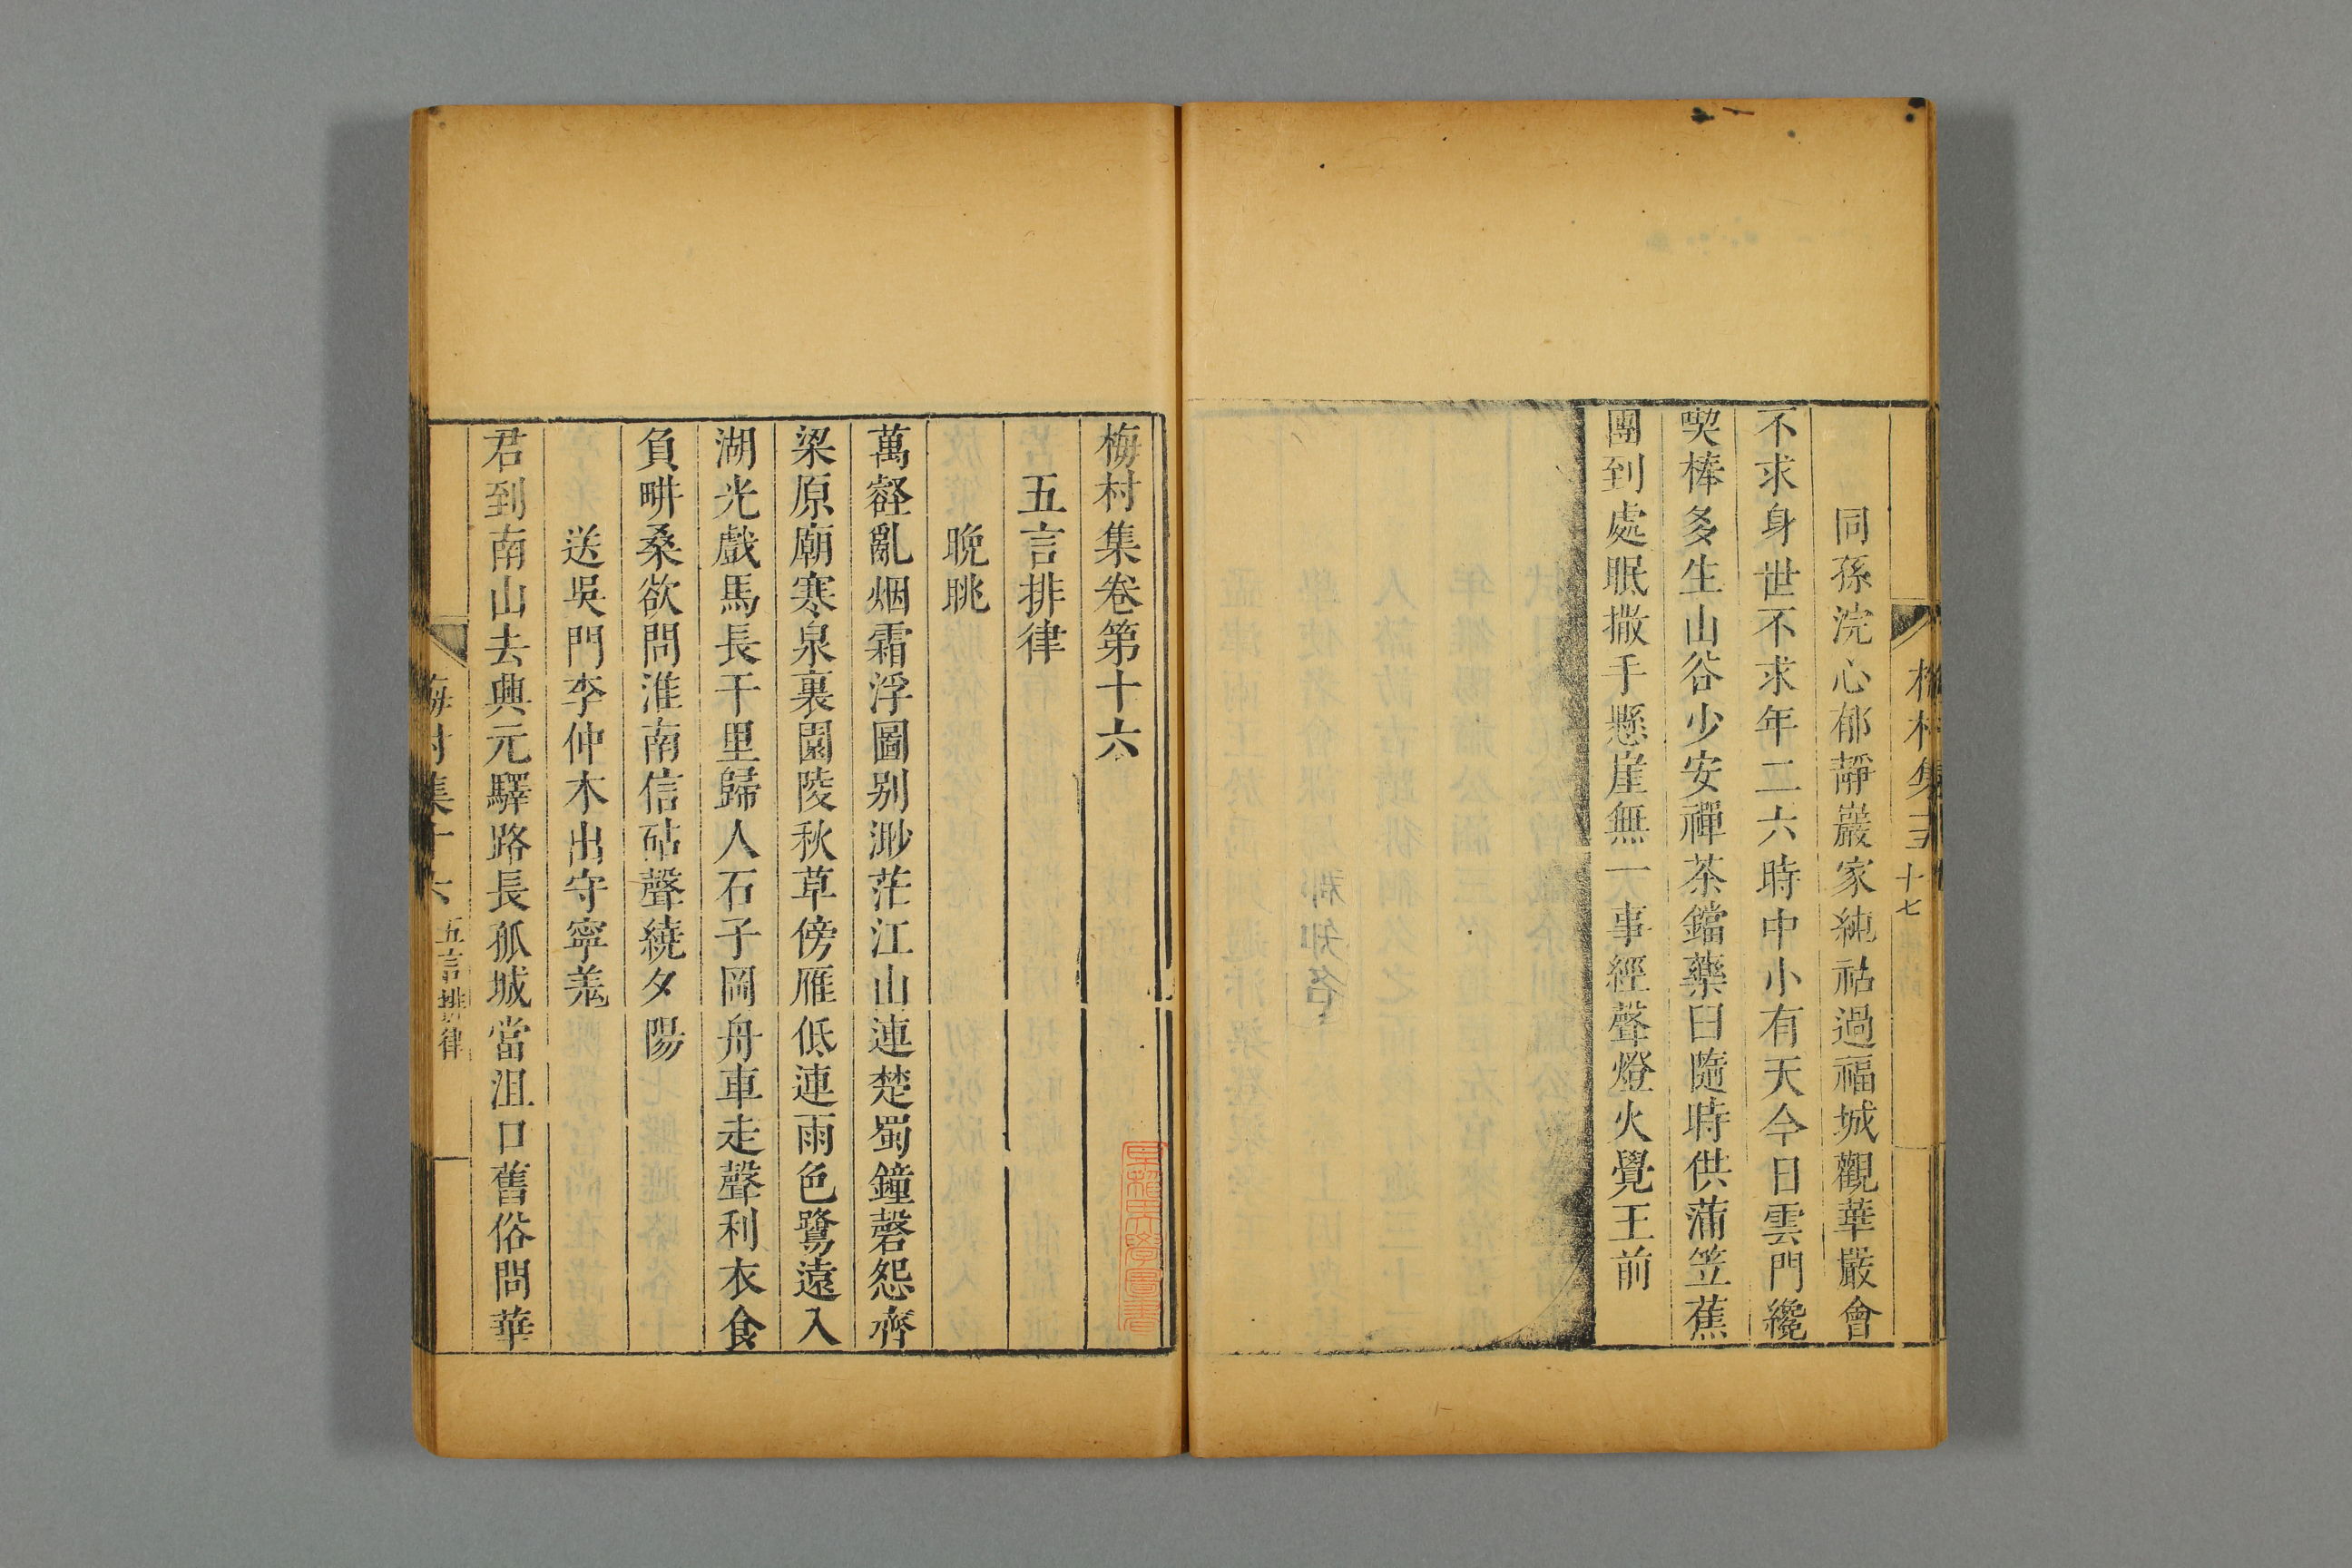 同孫浣心郁靜巖家純祜過福城觀華嚴會
不求身世不求年二六時中小有天今日雲門纔
喫棒多生山谷少安禪茶鐺藥臼隨時供蒲笠蕉
團到處眠撒手懸崖無一事經聲燈火覺王前
梅村集卷第十六
五言排律
晚眺
萬壑亂烟霜浮圖别渺茫江山連楚蜀鐘磬怨齊
梁原廟寒泉裏園陵秋草傍雁低連雨色鷺遠入
湖光戲馬長干里歸人石子岡舟車走聲利衣食
負畊桑欲問淮南信砧聲繞夕陽
送吳門李仲木出守寧羗
君到南山去興元驛路長孤城當沮口舊俗問華
梅村集十六
五言排律